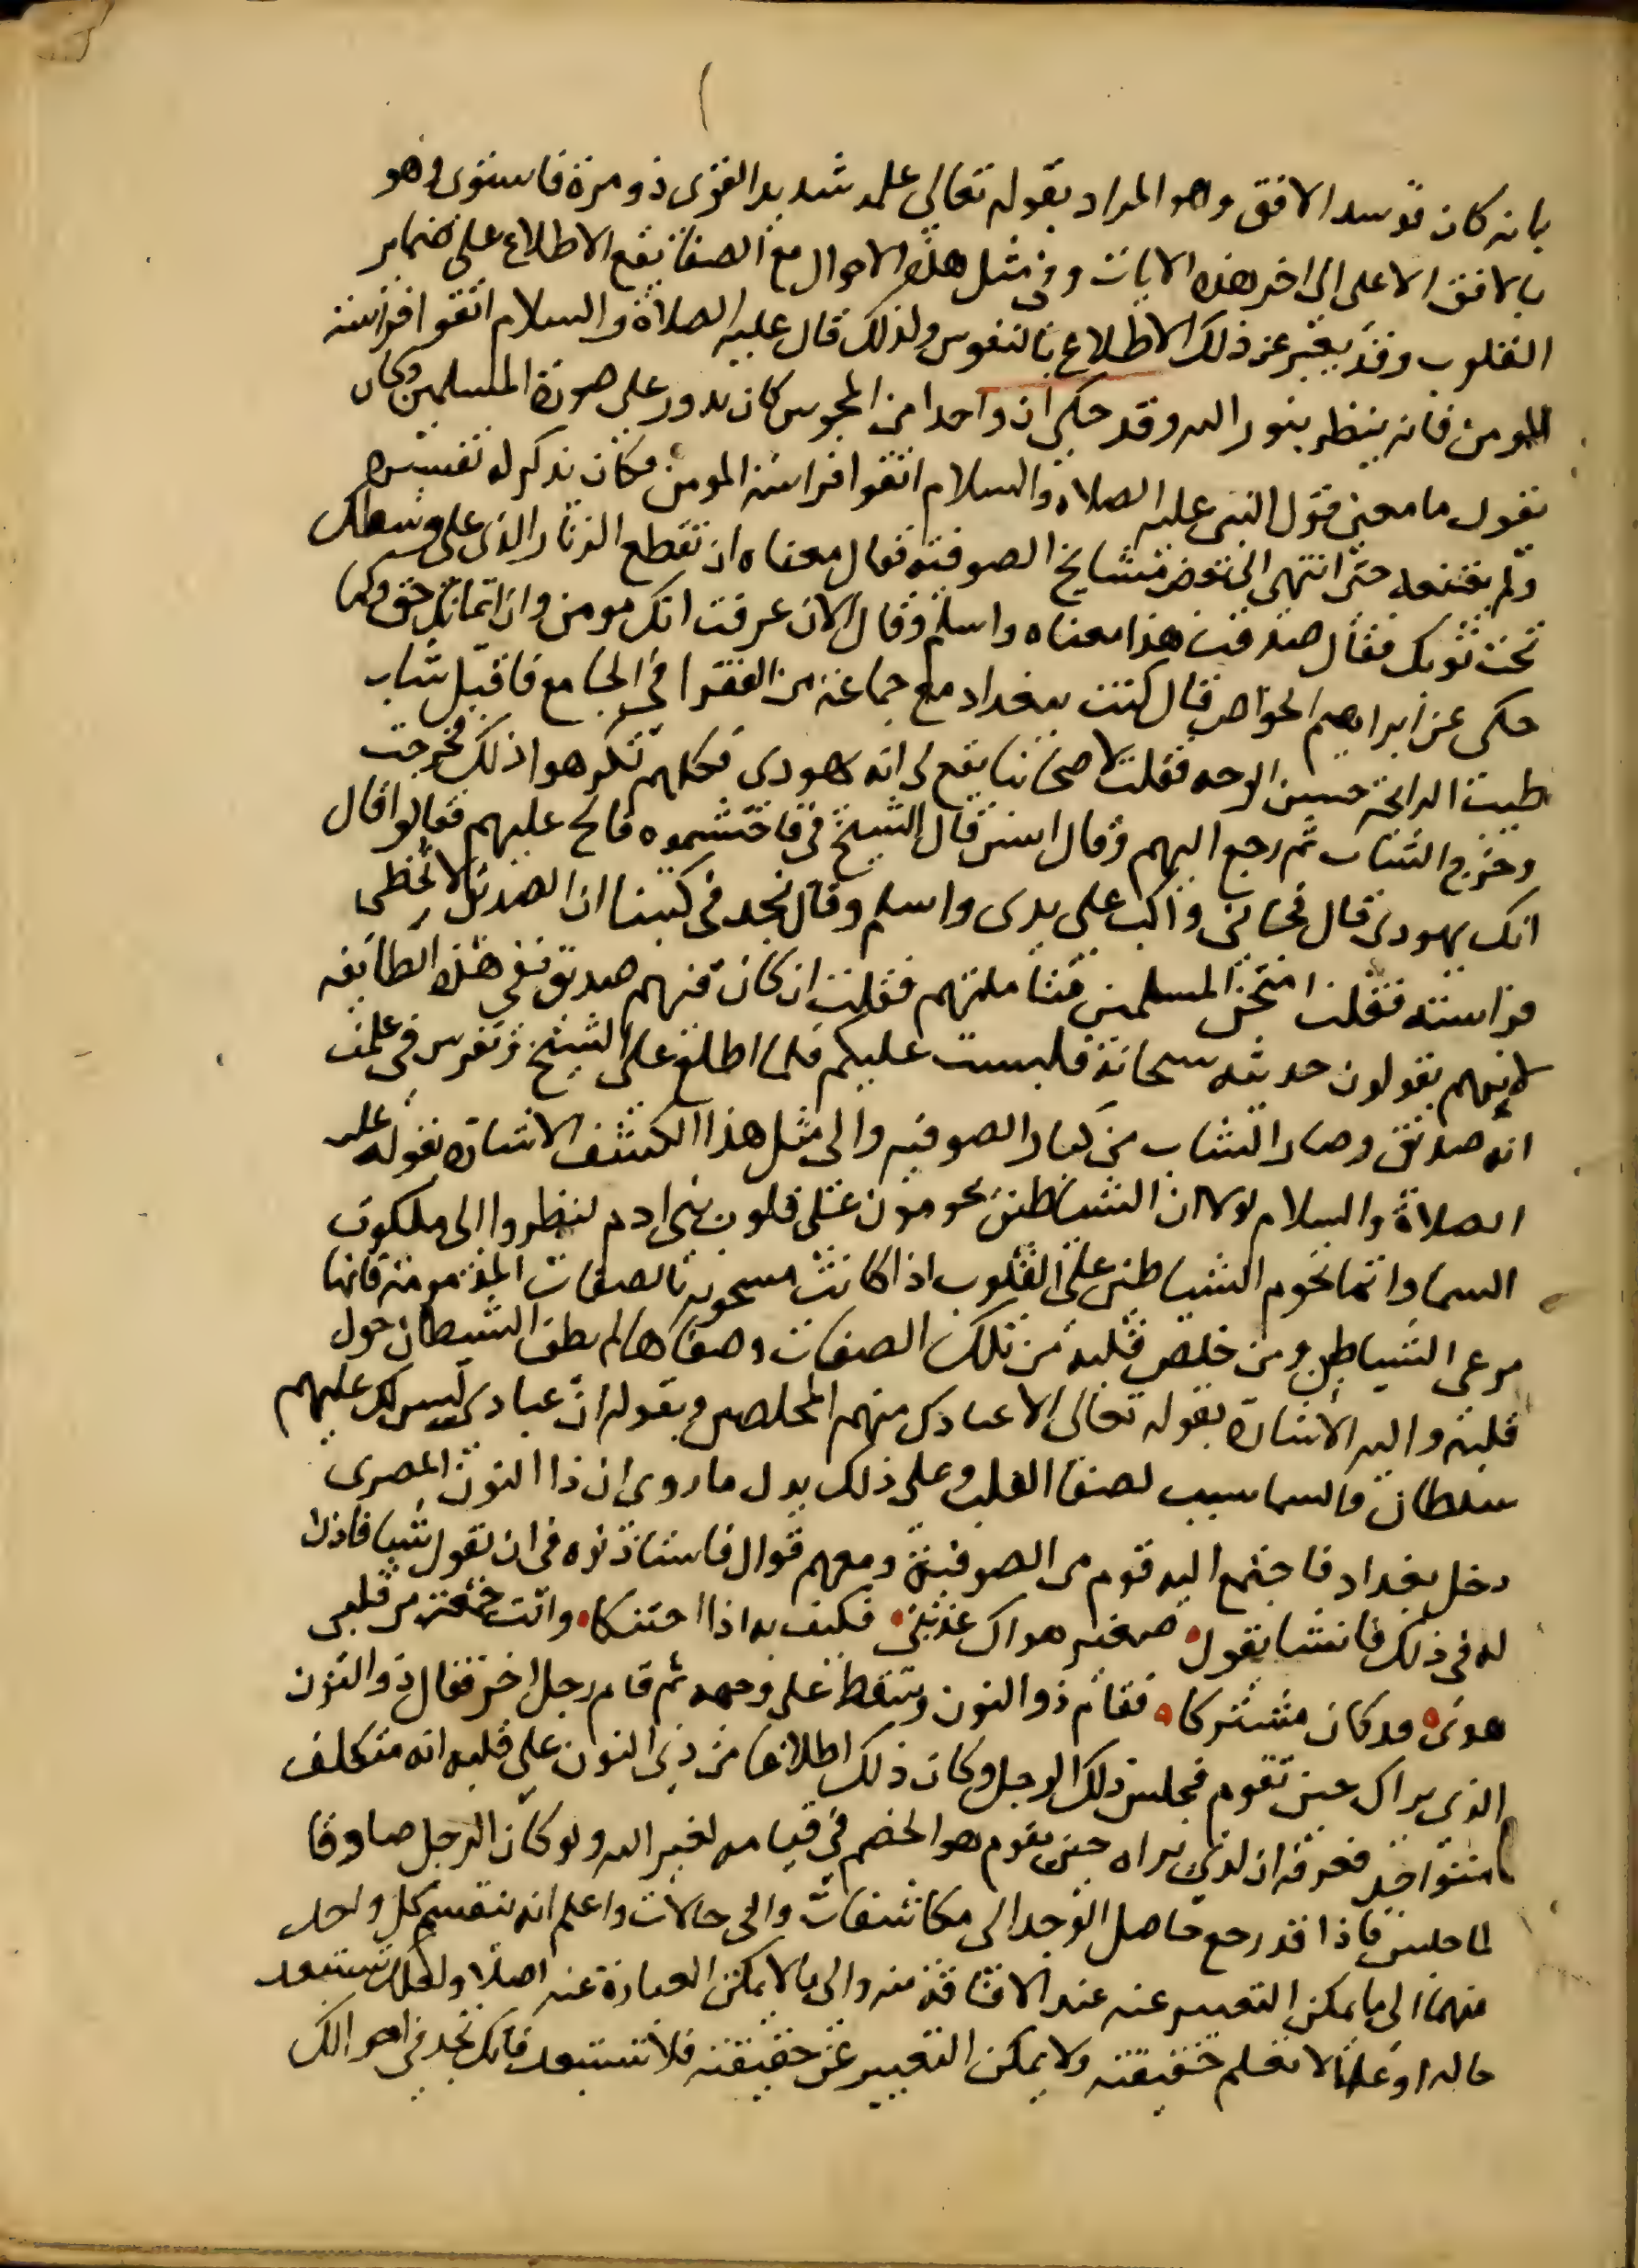 بانه كان قد سد الافق وهو المراد بقوله تعالى علمه شديد القوى ذو مرة فاستوى وهو
بالافق الاعلى الى اخر هذه الايات وفى مثل هذه الاحوال مع الصفا يقع الاطلاع على ضماير
القلوب وقد يعبر عن ذلك الاطلاع بالتفرس ولذلك قال عليه الصلاة والسلام اتقوا فراسة
المومن فانه ينظر بنور الله وقد حكى ان واحدا من المجوس كان يدور على صورة المسلمين وكان
يقول ما معنى قول النبى عليه الصلاة والسلام اتقوا فراسة المومن فكان يذكر له تفسيره
ولم يقنعه حتى انتهى الى بعض مشايخ الصوفية فقال معناه ان تقطع الزنار الذى على وسطك
تحت ثوبك فقال صدقت هذا معناه واسلم وقال الان عرفت انك مومن وان ايمانك حق وكما
حكى عن ابراهيم الخواص قال كنت ببغداد مع جماعة من الفقرا فى الجامع فاقبل شاب
طيب الرايحة حسن الوجه فقلت لاصحابنا يقع لى انه يهودى فكلهم كرهوا ذلك فخرجت
وخرج الشاب ثم رجع اليهم وقال ايش قال الشيخ فى فاحتشموه فالح عليهم فقالوا قال
انك يهودى قال فجانى واكب على يدى واسلم وقال نجد فى كتبنا ان الصديق لا تخطى
فراسته فقلت امتحن المسلمين فتاملتهم فقلت ان كان فيهم صديق ففى هذه الطايفه
لانهم يقولون حديثه سبحانه فلبست عليكم فلما اطلع على الشيخ وتفرس فى علمت
انه صديق وصار الشاب من كبار الصوفيه والى مثل هذا الكشف الاشارة بقوله عليه
الصلاة والسلام لولا ان الشياطين يحومون على قلوب بنى ادم لنظروا الى ملكوت
السما وانما تحوم الشياطين على القلوب اذا كانت مشحونه بالصفات المذمومة فانها
مرعى الشياطين ومن خلص قلبه من تلك الصفات وصفاها لم يطف الشيطان حول
قلبه واليه الاشارة بقوله تعالى الا عبادك منهم المخلصين وبقوله ان عبادى ليس لك عليهم
سلطان والسماع سبب لصفا القلب وعلى ذلك يدل ما روى ان ذا النون المصرى
دخل بغداد فاجتمع اليه قوم من الصوفية ومعهم قوال فاستاذنوه فى ان يقول شيا فاذن
له فى ذلك فانشا يقول صغير هواك عذبنى فكيف به اذا احتنكا وانت جمعت من قلبى
هوى قد كان مشتركا فقام ذو النون وسقط على وجهه ثم قام رجل اخر فقال ذو النون
الذى يراك حين تقوم فجلس ذلك الرجل وكان ذلك اطلاعا من ذى النون على قلبه انه متكلف
متواجد فعرفه ان الذى يراه حين يقوم هو الخصم فى قيامه لغير الله ولو كان الرجل صادقا
لما جلس فاذا قد رجع حاصل الوجد الى مكاشفات والى حالات واعلم انه ينقسم كل واحد
منهما الى ما يمكن التعبير عنه عند الافاقة منه والى ما لا يمكن العبارة عنه اصلا ولعلك تستبعد
حاله او علما لا تعلم حقيقته ولا يمكن التعبير عن حقيقته فلا تستبعد فانك تجد فى احوالك